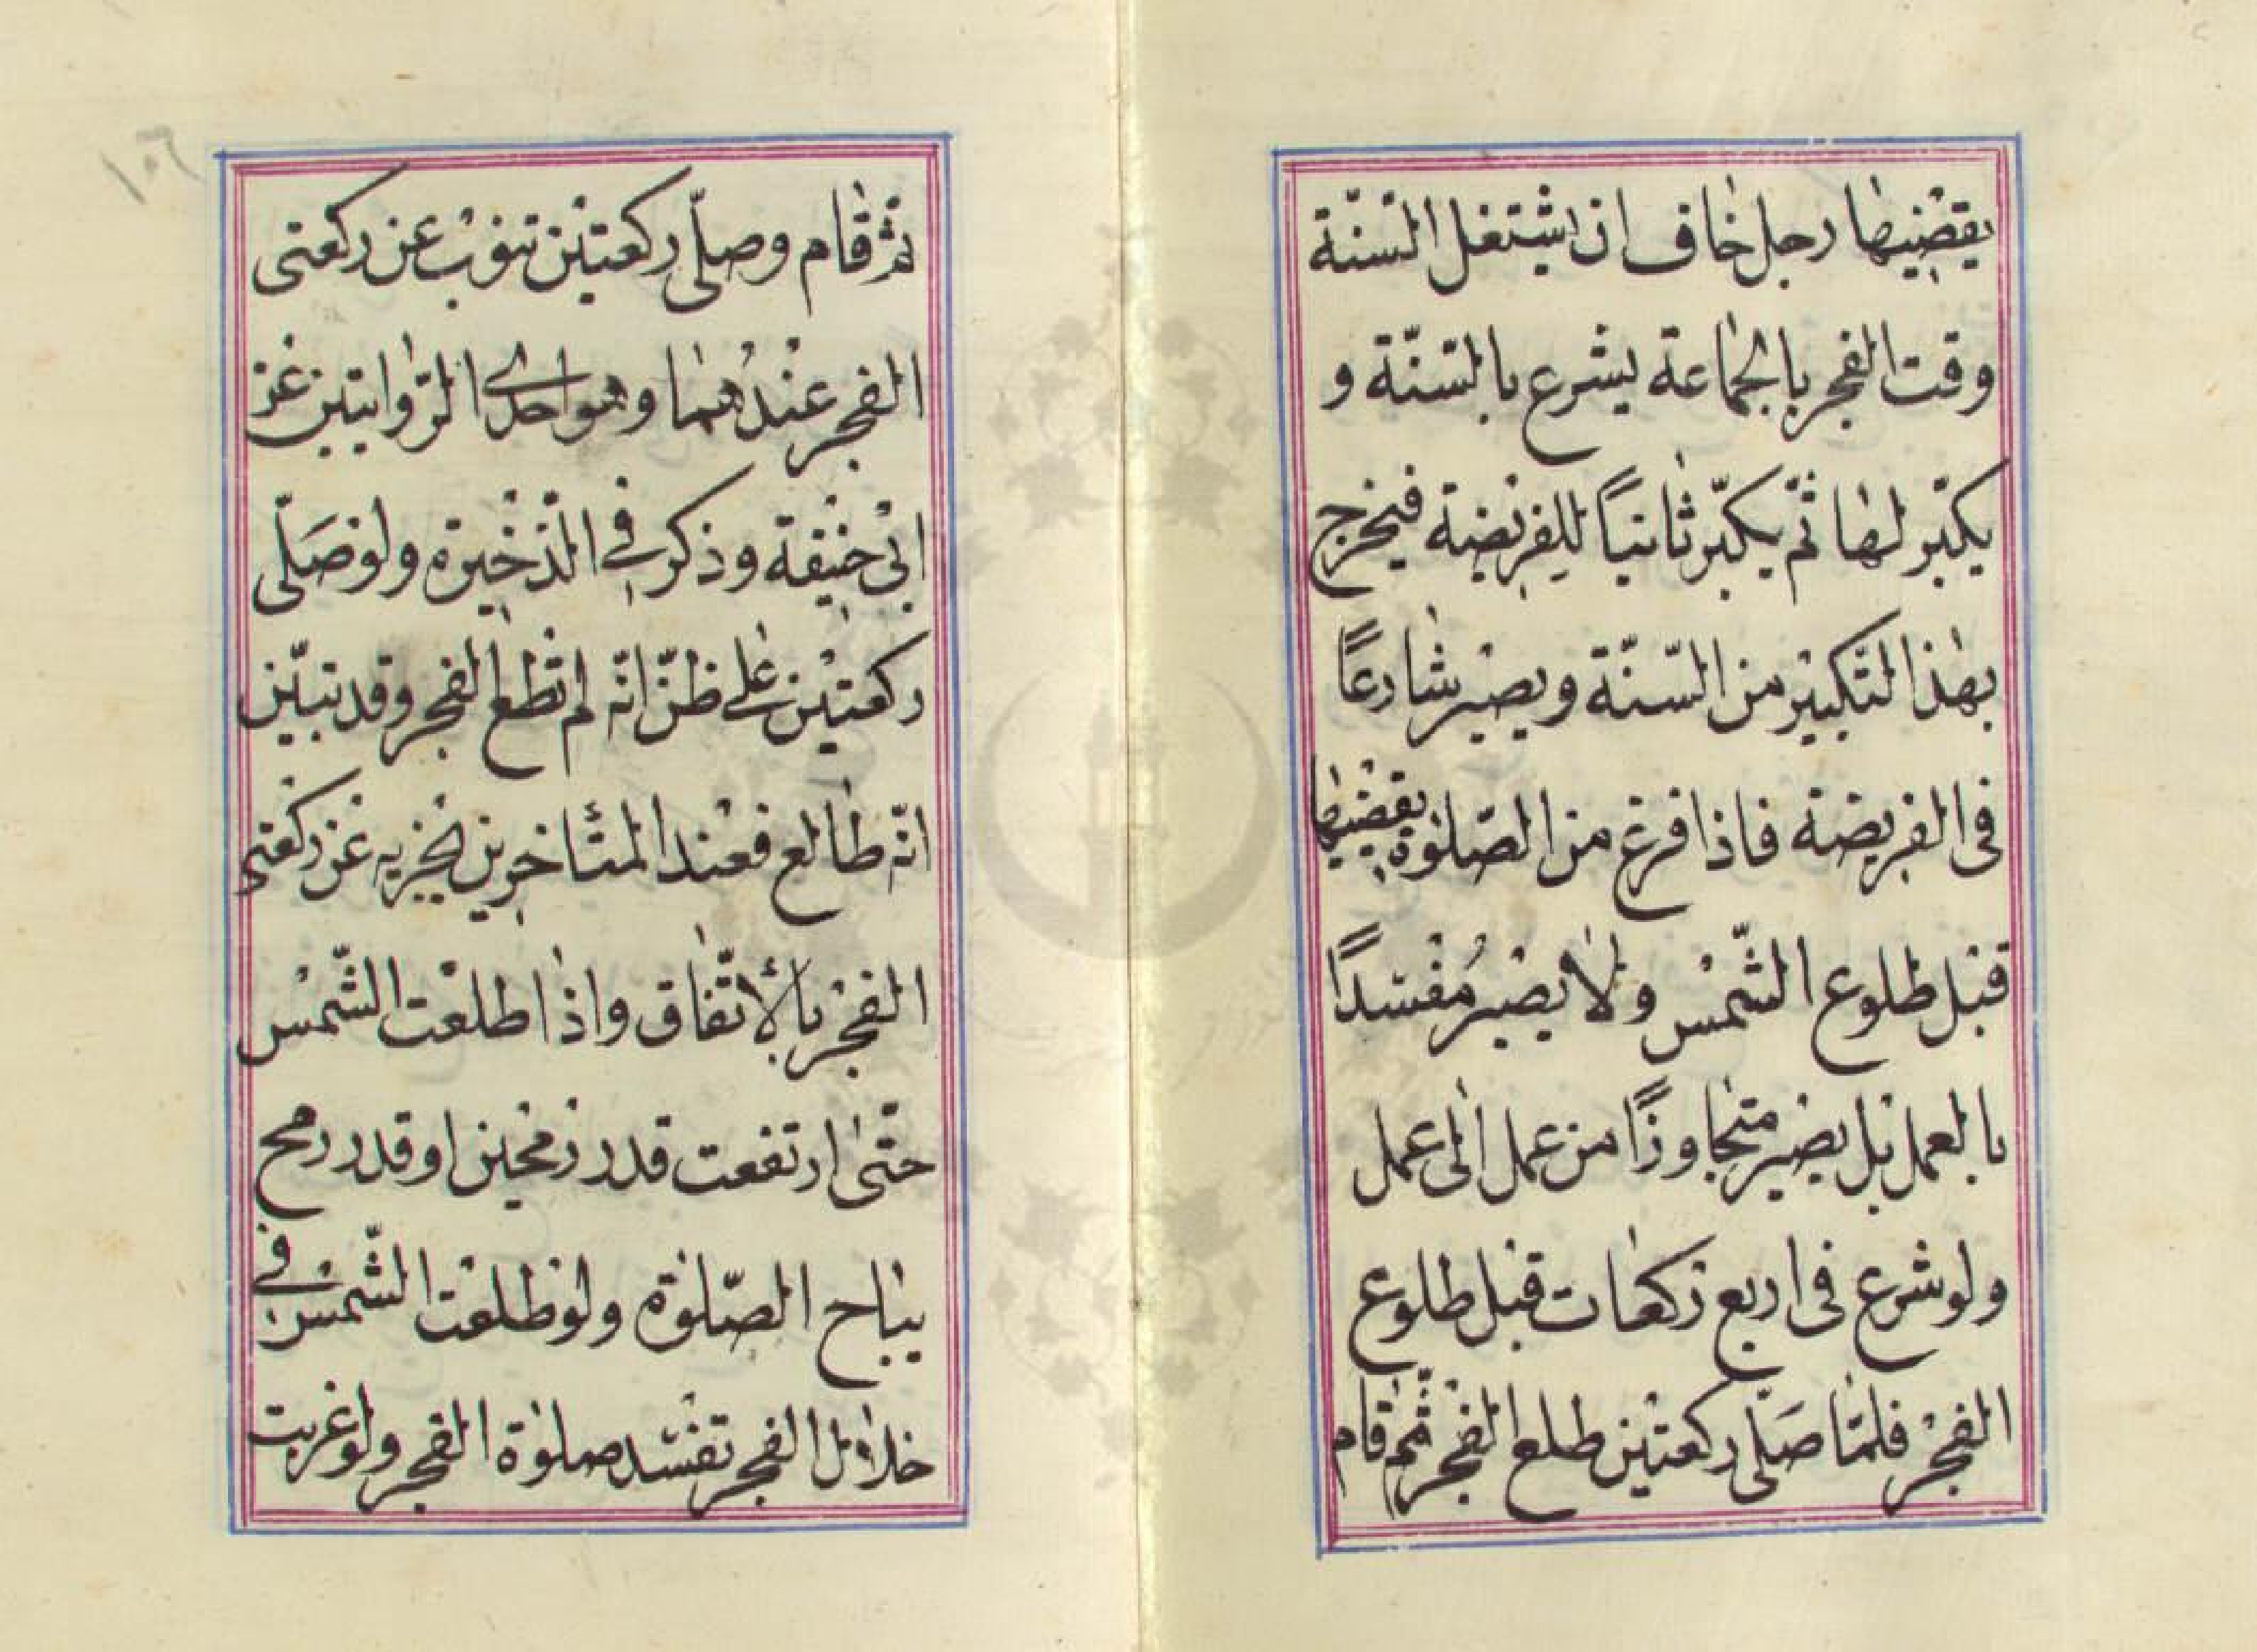 يقضيها رجل خاف ان يشتغل السّنّة
وقت الفجر بالجماعة يشرع بالسّنّة و
يكبّر لها ثمّ يكبّر ثانياً للفريضة فيخرج
بهذا التّكبير من السّنّة ويصير شارعاً
فى الفريضة فاذا فرغ من الصّلوة يقضيها
قبل طلوع الشّمس ولا يصير مُفسدًا
بالعمل بل يصير متجاوزًا من عمل الى عمل
ولو شرع فى اربع ركعات قبل طلوع
الفجر فلمّا صَلّى ركعتين طلع الفجر ثمّ قام
ثمّ قام وصلّى ركعتين تنوب عن ركعتى
الفجر عندهما وهو احدى الرّوايتين عن
ابى حنيفة وذكر فى الذّخيرة ولو صَلّى
ركعتين على ظنّ انّه لم تطلع الفجر وقد تبيّن
انّه طالع فعند المتأخرين يجزيه عن ركعتى
الفجر بالأتّفاق واذا طلعت الشّمس
حتّى ارتفعت قدر رمحين او قدر رمح
يباح الصّلوة ولو طلعت الشّمس فى
خلال الفجر تفسد صلوة الفجر ولو غربت
١٠٦